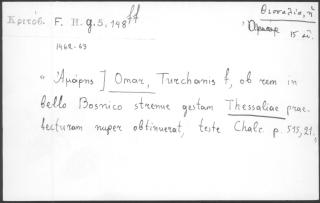 Κριτόβ. F. H. g. 5, 148 ff
Θεσσαλία, ἡ
Ὀμάρης
15 αἰ.
1462-63
"Ἀμάρης] Omar, Turchanis f., ob rem in
bello Bosnico strenue gestam Thessaliae prae-
fecturam nuper obtinuerat, teste Chalc. p. 515,21.